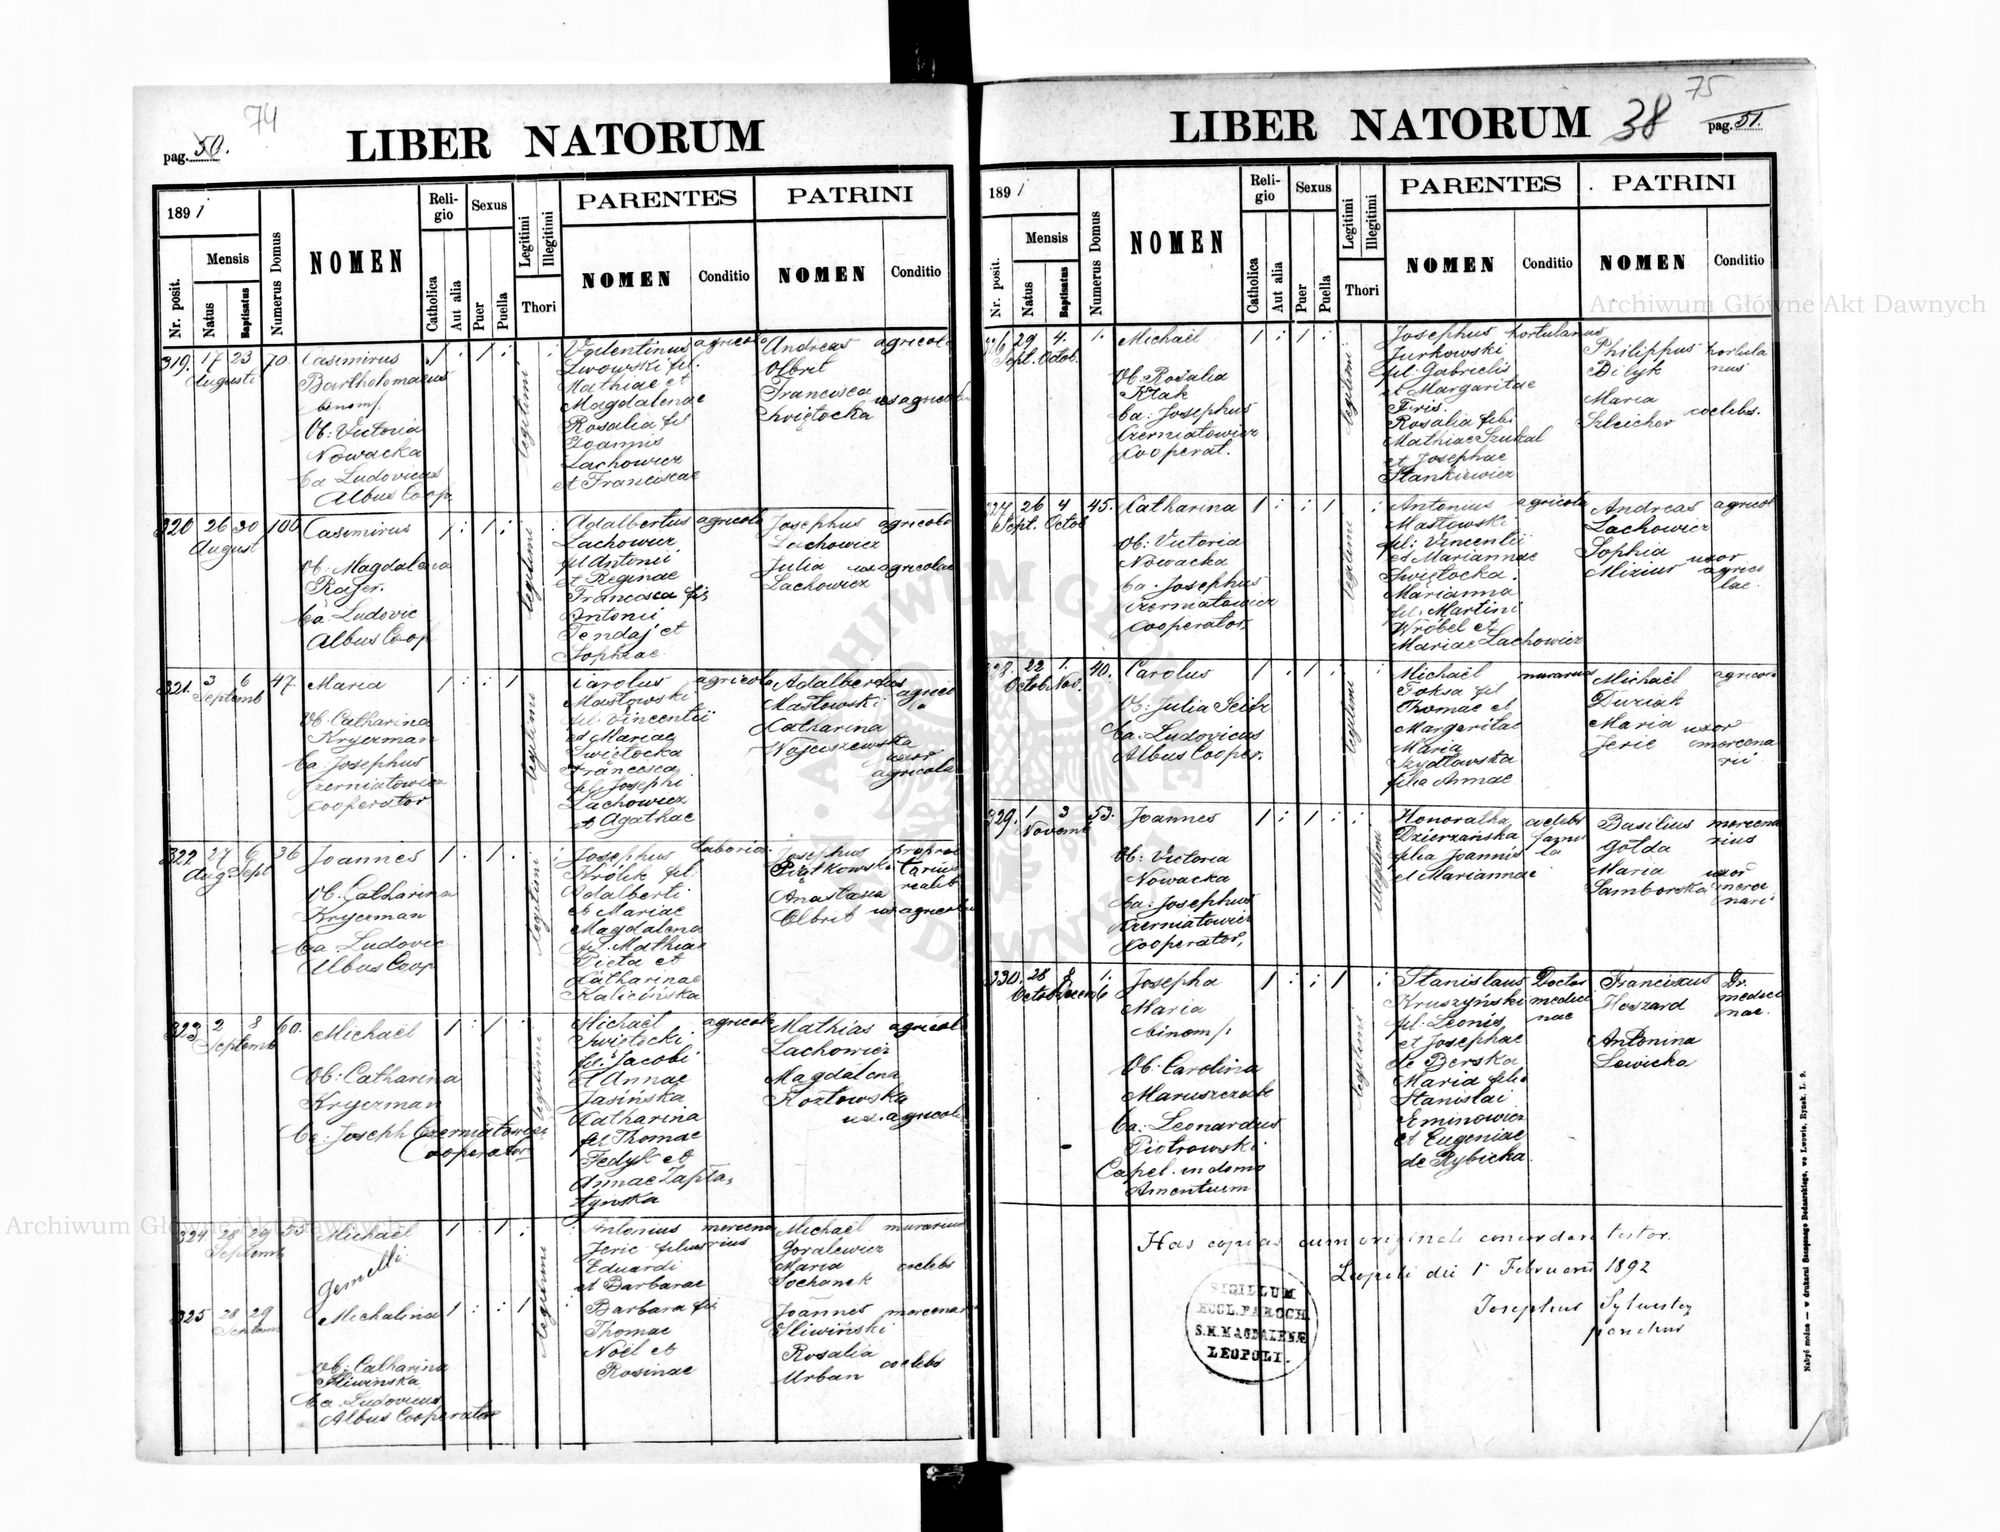 74
pag. 50.
LIBER NATORUM
1891
Nr. posit.
Mensis
Natus
Baptisatus
Numerus Domus
NOMEN
Religio
Catholica
Aut alia
Sexus
Puer
Puella
Legitimi
Illegitimi
Thori
PARENTES
NOMEN
Conditio
PATRINI
NOMEN
Conditio
319. 17 23 70.
Augusti
Casimirus
Bartholomaeus
binom.
Ob: Victoria
Nowacka
Ba Ludovicus
Albus Coop.
legitimi
Valentinus agricola
Lwowski fil.
Mathiae et
Magdalenae
Rosalia fil
Joannis
Lachowicz
et Franciscae
Andreas agricola
Olbrit
Francisca
Swiętocka ux agricolae
320 26 30 100
August
Casimirus
Ob: Magdalena
Rajer.
Ba: Ludovic
Albus Coop
legitimi
Adalbertus agricola
Lachowicz
fil Antonii
et Reginae
Francisca fil:
Antonii
Tendaj et
Sophiae
Josephus agricola
Lachowicz
Julia ux agricolae
Lachowicz
321. 3 6 47.
Septemb
Maria
Ob: Catharina
Kryczman
Ba: Josephus
Czerniatowicz
Cooperator
legitimi
Carolus agricola
Masłowski
fil. Vincentii
et Mariae
Swiętocka
Francisca
fil. Josephi
Lachowicz
et Agathae
Adalbertus
Masłowski agricola
Catharina
Wojciszewska
uxor
agricola
322 27 6 36
Aug. Sept
Joannes
Ob: Catharina
Kryczman
Ba Ludovic
Albus Coop
legitimi
Josephus laborio.
Królik fil.
Adalberti
et Mariae
Magdalena
fil. Mathiae
Pieta et
Catharinae
Kalicińska
Josephus proprie
Piątkowski tarius
realit
Anastasia
Olbrit ux agricolae
323 2 8 60.
Septemb
Michaël
Ob: Catharina
Kryczman
Ba: Joseph Czerniatowicz
Cooperator
legitimi
Michaël agricola
Swiętocki
fil: Jacobi
et Annae
Jasińska
Catharina
fil Thomae
Fedyk et
Annae Zapła,
tyńska
Mathias agricola
Lachowicz
Magdalena
Kozłowska
ux. agricolae
324 28 29 55
Septemb
Michaël
Gemelli
legitimi
Antonius mercena
Jeric filius rius
Eduardi
et Barbarae
Michaël murarius
Goralewicz
Maria coelebs
Sochanek
325 28 29
Septem
Michalina
Ob: Catharina
Sliwińska
Ba. Ludovicus
Albus Cooperator
Barbara fil
Thomae
Noël et
Rosinae
Joannes mercenar
Sliwiński
Rosalia
Urban coelebs
75
38
pag. 51.
LIBER NATORUM
1891
Nr. posit.
Mensis
Natus
Baptisatus
Numerus Domus
NOMEN
Religio
Catholica
Aut alia
Sexus
Puer
Puella
Legitimi
Illegitimi
Thori
PARENTES
NOMEN
Conditio
PATRINI
NOMEN
Conditio
326 29 4. 1.
Spt. Octob.
Michaël
Ob. Rosalia
Kłak
Ba: Josephus
Czerniatowicz
Cooperat.
legitimi
Josephus hortulanus
Jurkowski
fil. Gabrielis
et Margaritae
Feris.
Rosalia fili.
Mathiae Szukal
et Josephae
Stankiewicz
Philippus hortula
Bilyk nus
Maria
Szleicher coelebs.
327 26 4 45.
Sept. Octob
Catharina
Ob: Victoria
Nowacka
Ba: Josephus
Czerniatowicz
Cooperator,
legitimi
Antonius agricola
Masłowski
fil: Vincentii
et Mariannae
Swiętocka.
Marianna
fil. Martini
Wróbel et
Mariae Lachowicz
Andreas agricol
Lachowicz
Sophia uxor
Miziur agrico
lae.
328. 22 1. 40.
Octob Nov.
Carolus
Ob: Julia Seitz
Ba: Ludovicus
Albus Cooper.
legitimi
Michaël murarius
Foksa fil
Thomae et
Margaritae
Maria
Szydłowska
filia Annae
Michaël agricol
Duziak
Maria uxor
Jeric mercena
rii
329. 1 3 53.
Novemb
Joannes
Ob: Victoria
Nowacka
Ba: Josephus
Czerniatowicz
Cooperator,
illegitimi
Honoratha coelebs
Dzierzańska famu
filia Joannis la
et Mariannae
Basilius mercena
Gołda rius
Maria uxor
Samborska merce
nari
330. 28 8 1.
Octob Decemb
Josepha
Maria
binom.
Ob: Carolina
Maruszczak
Ba: Leonardus
Piotrowski
Capel. in domo
Amentium
legitimi
Stanislaus Doctor
Kruszyński medici
fil. Leonis nae
et Josephae
de Berska
Maria filia
Stanislai
Eminowicz
et Eugeniae
de Rybicka.
Franciscus Dr.
Hoszard medici
nae.
Antonina
Lewicka
Has copias cum originali concordare testor.
Leopoli die 1 Februarii 1892
Josephus Sylwester
parochus
SIGILLUM
ECCL. PAROCH.
S. M. MAGDALENÆ
LEOPOLI.
Nabyć można — w drukarni Szczęsnego Bednarskiego, we Lwowie, Rynek. L. 9.
Archiwum Główne Akt Dawnych
Archiwum Główne Akt Dawnych
ARCHIWUM GŁÓWNE AKT DAWNYCH